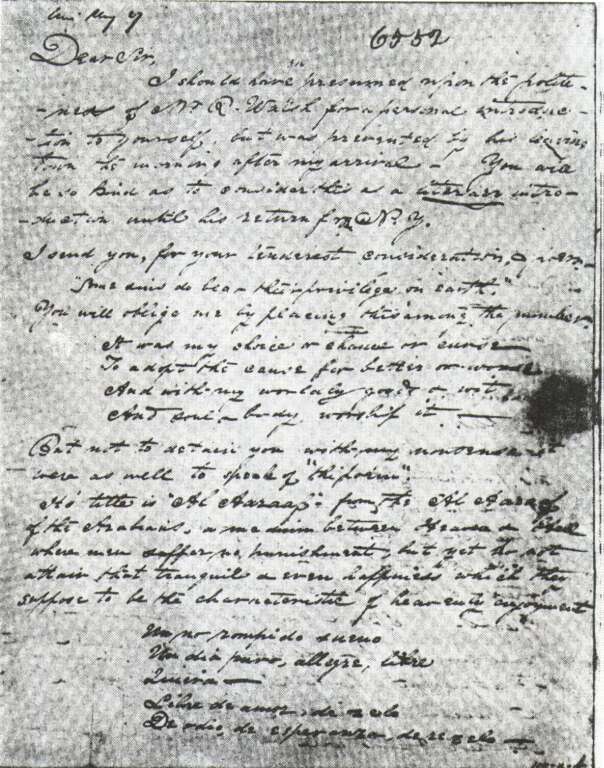 6552
Dear Sir,
I should have presumed upon the polite-
-ness of Mr R. Walsh for a personal introduc-
-tion to yourself, but was prevented by his leaving
town the morning after my arrival — You will
be so kind as to consider this as a literary intro-
-duction until his return from N. Y.
I send you, for your tenderest consideration, a poem —
"Some sins do bear their privilege on earth."
You will oblige me by placing this among the number
It was my choice or chance or curse
To adopt the cause for better or worse
And with my worldly goods & wit
And soul & body worship it —
But not to detain you with my nonsense it
were as well to speak of "the poem".
Its title is "Al Aaraaf" — from the Al Aaraaf
of the Arabians, a medium between Heaven & Hell
where men suffer no punishment, but yet do not
attain that tranquil & even happiness which they
suppose to be the characteristic of heavenly enjoyment
Un no rompido sueno
Un dia puro, allegre, libre
Quiera —
Libre de amor, de zelo
De odio, de esperanza, de rezelo —